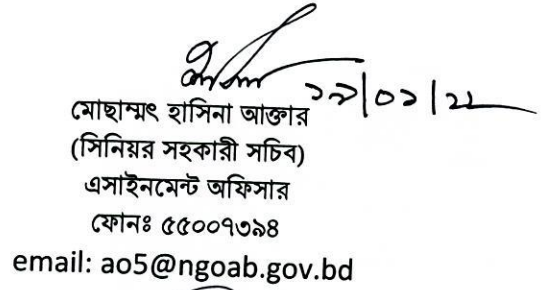 ১৯/০১/২২
মোছাম্মৎ হাসিনা আক্তার
(সিনিয়র সহকারী সচিব)
এসাইনমেন্ট অফিসার
ফোনঃ ৫৫০০৭৩৯৪
email: ao5@ngoab.gov.bd